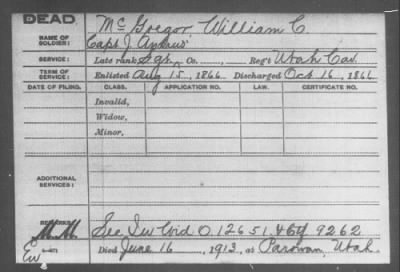 DEAD.
NAME OF SOLDIER:
McGregor, William C.
Capt. J. Andrus'
SERVICE:
Late rank, Sgt. Co., Reg't Utah Cav.
TERM OF SERVICE:
Enlisted Aug 15, 1866 Discharged Oct. 16, 1866
DATE OF FILING. CLASS. APPLICATION NO. LAW. CERTIFICATE NO.
Invalid,
Widow,
Minor,
ADDITIONAL SERVICES:
REMARKS:
See Inv 0.12651.464 9262
Died June 16, 1913, at Parowan, Utah.